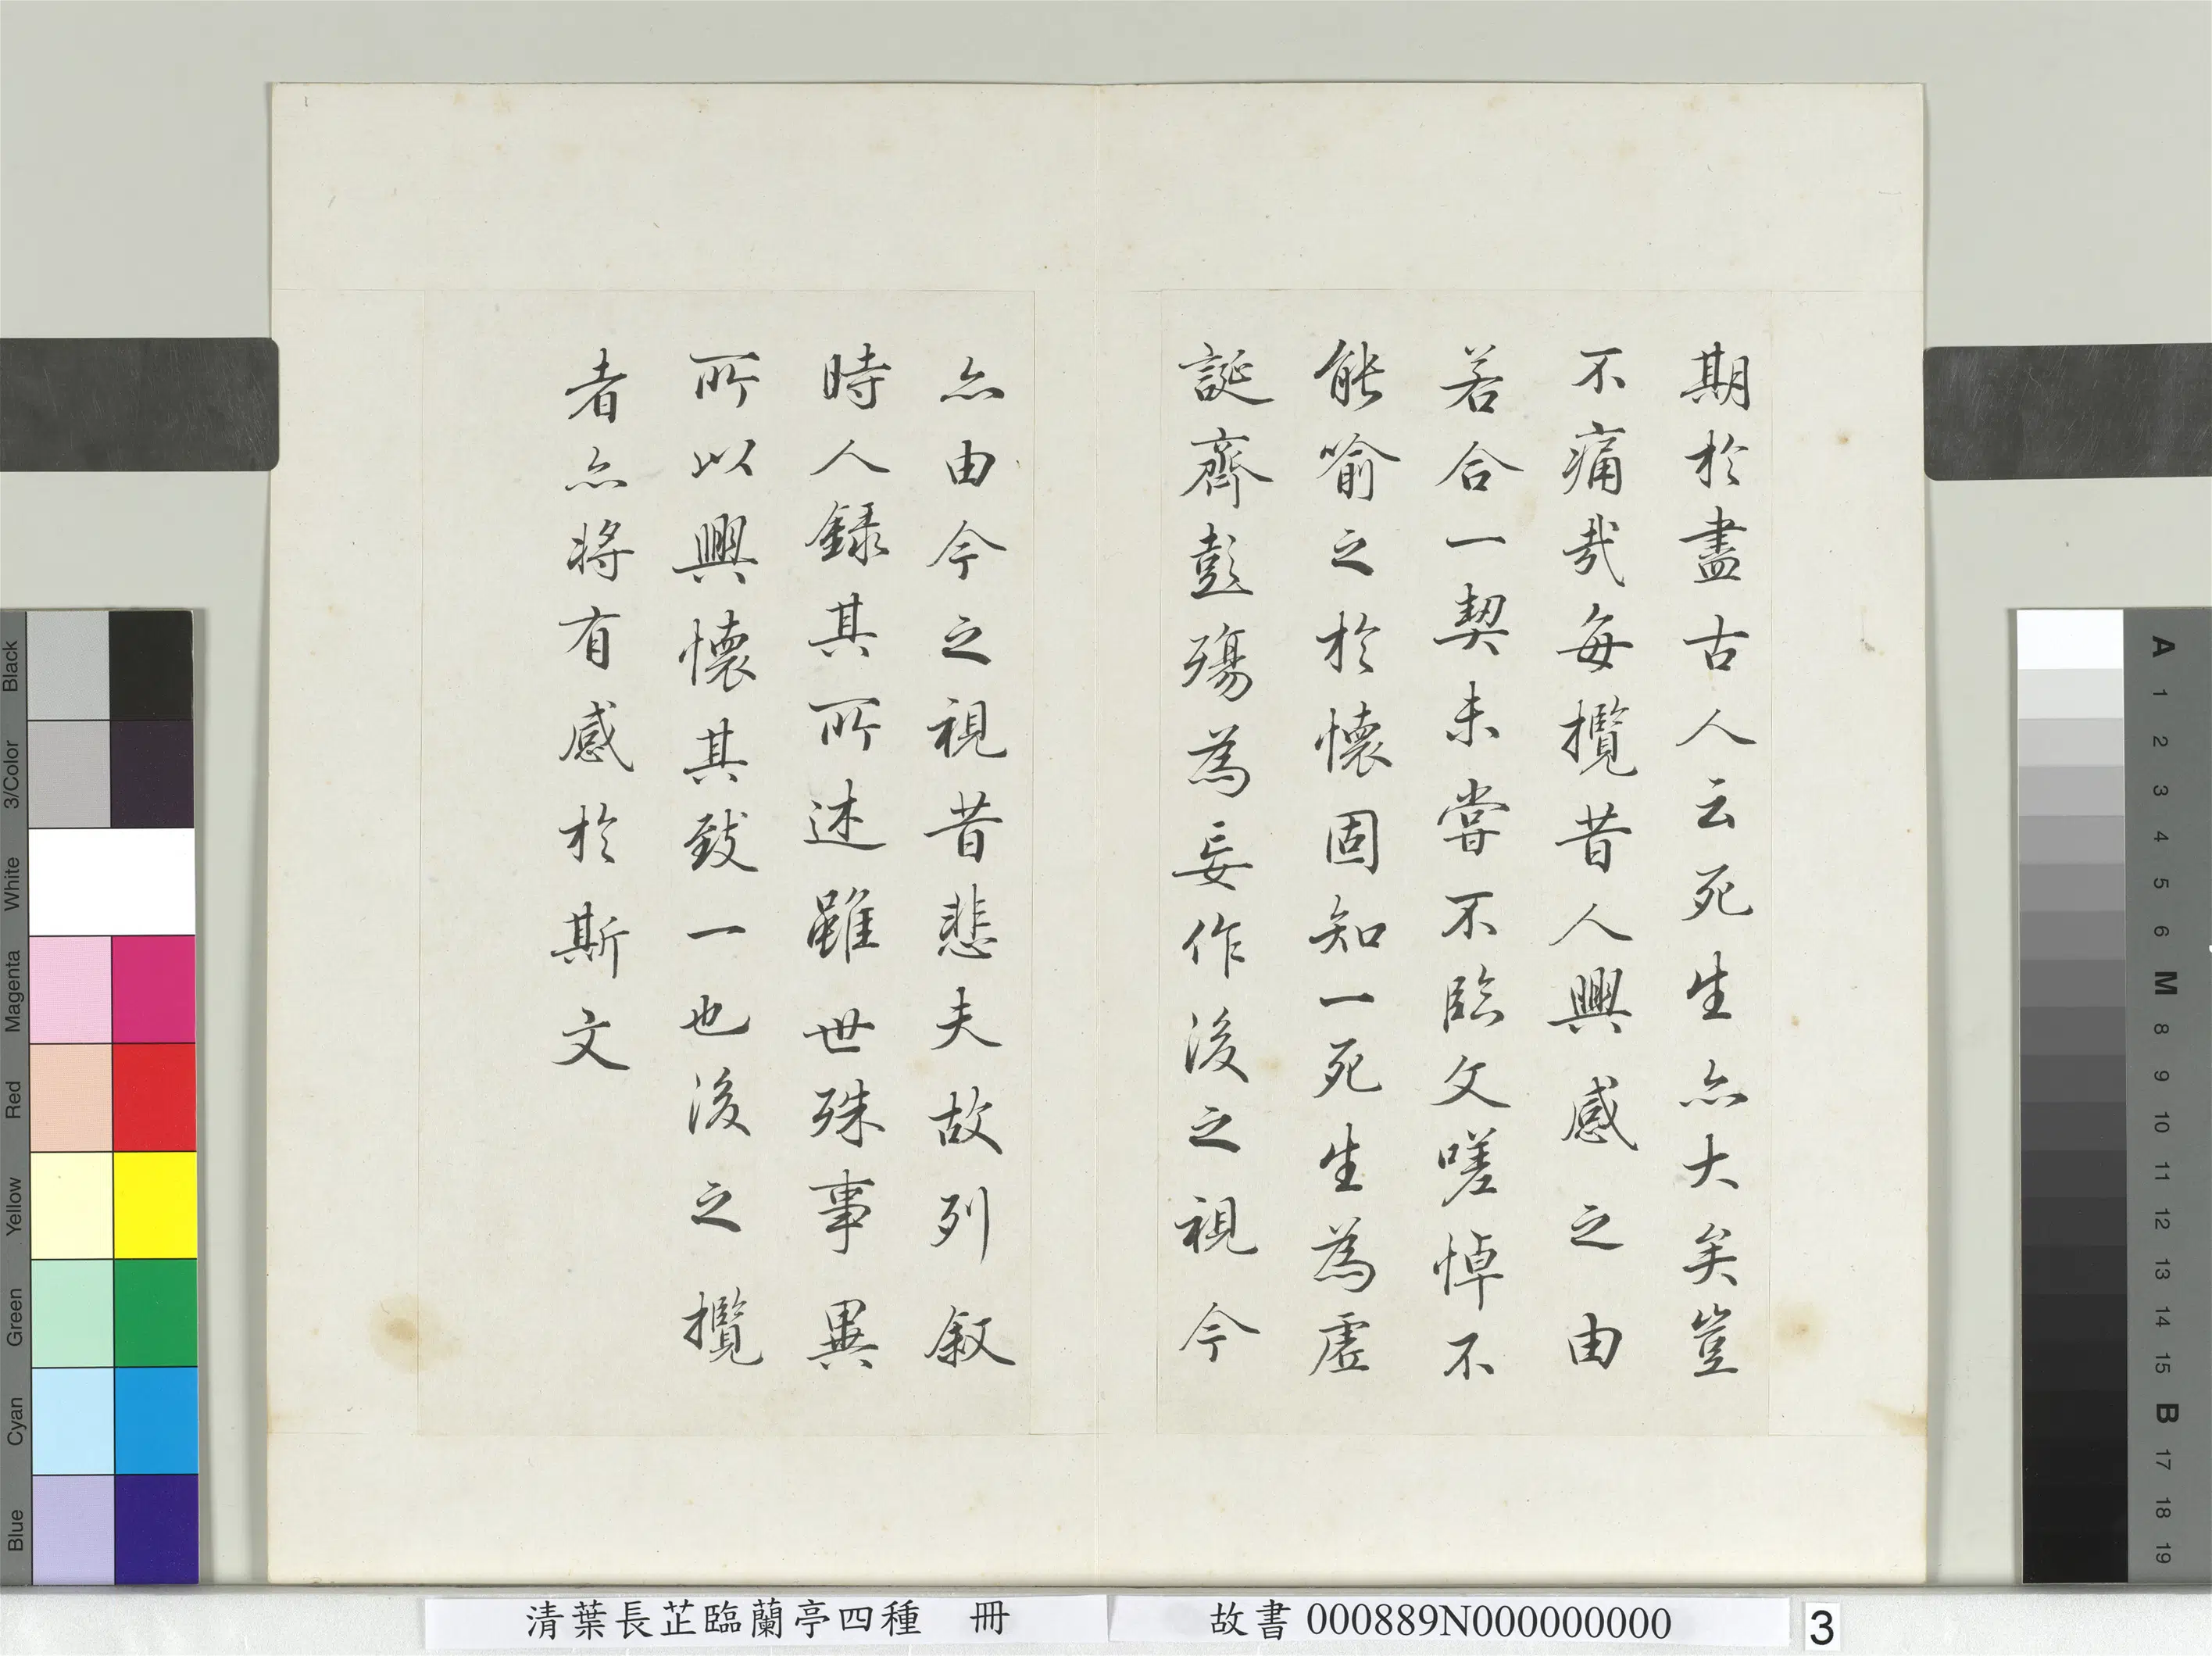 期於盡古人云死生亦大矣豈
不痛哉每攬昔人興感之由
若合一契未嘗不臨文嗟悼不
能喻之於懷固知一死生為虛
誕齊彭殤為妄作後之視今
亦由今之視昔悲夫故列敘
時人錄其所述雖世殊事異
所以興懷其致一也後之攬
者亦將有感於斯文
清葉長芷臨蘭亭四種 冊
故書 000889N000000000
3
Black
3/Color
White
Magenta
Red
Yellow
Green
Cyan
Blue
A
1
2
3
4
5
6
M
8
9
10
11
12
13
14
15
B
17
18
19